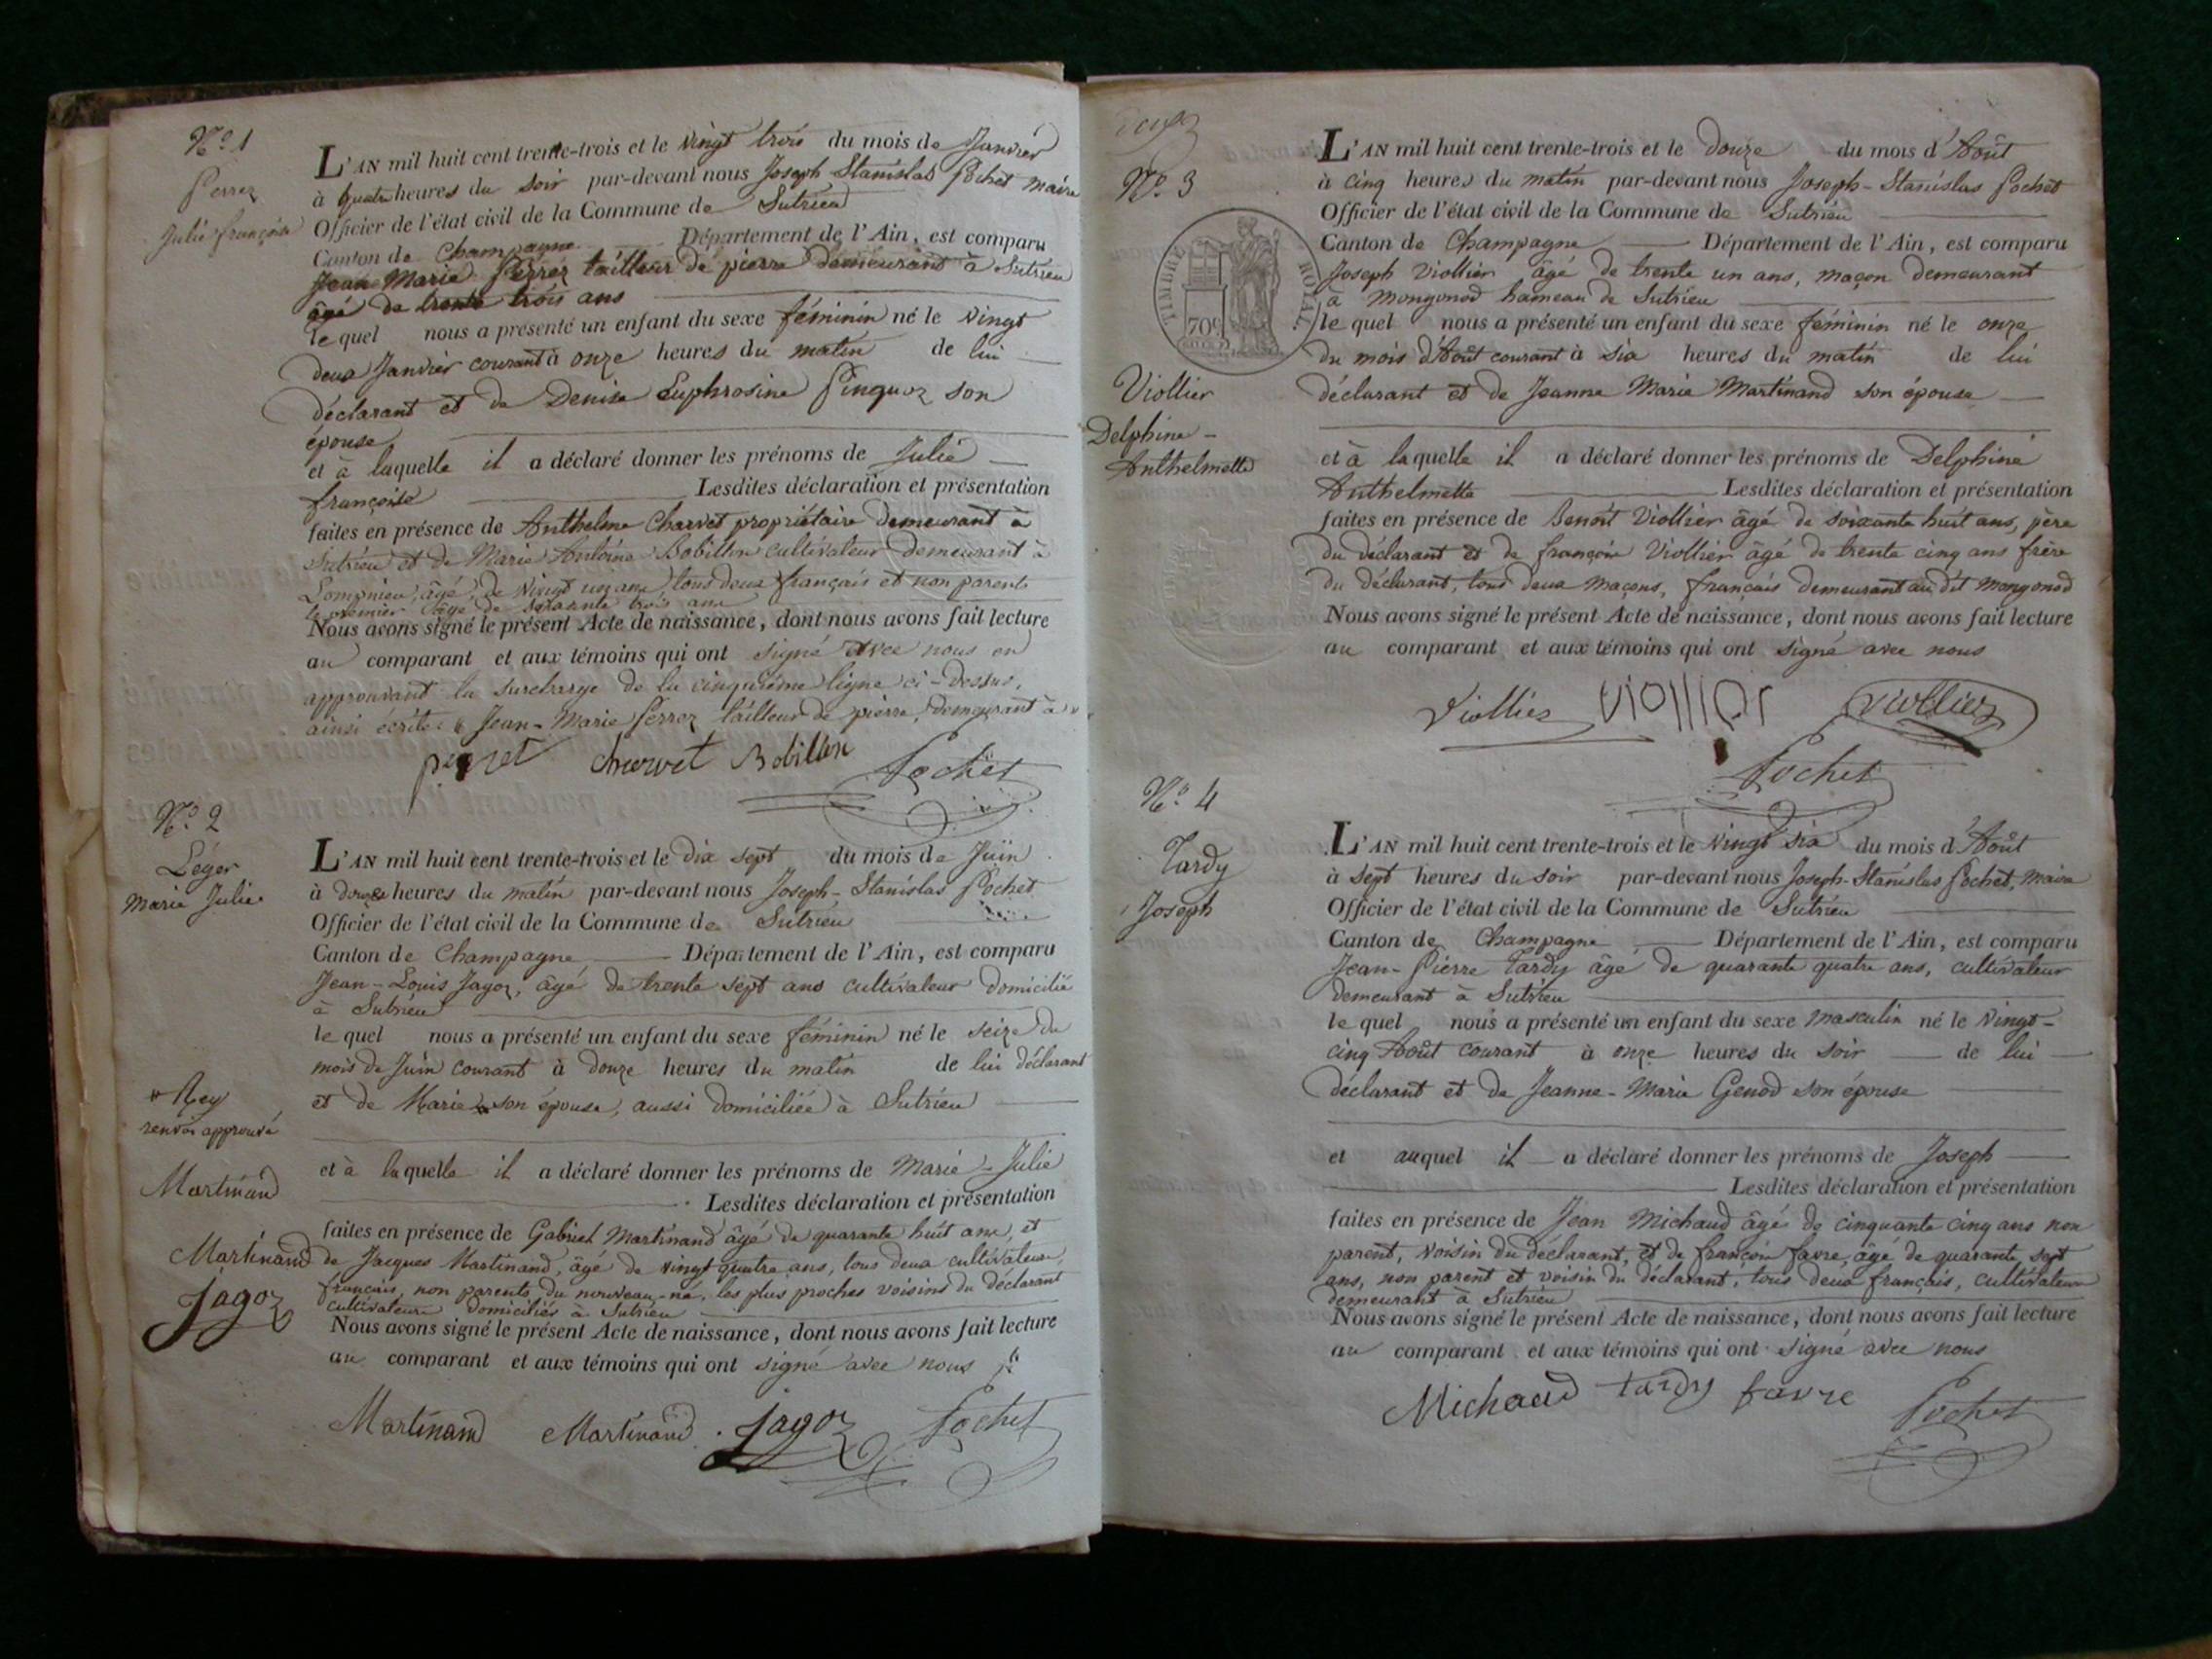 N.º 1
Perrez
Julie françoise
L'AN mil huit cent trente-trois et le vingt trois du mois de Janvier
à quatre heures du soir par-devant nous Joseph Stanislas Pochet maire
Officier de l'état civil de la Commune de Sutrieu
Canton de Champagne Département de l'Ain, est comparu
Jean-Marie Perrez tailleur de pierre demeurant à Sutrieu
âgé de trente trois ans
le quel nous a présenté un enfant du sexe féminin né le vingt
deux Janvier courant à onze heures du matin de lui
déclarant et de Denise Euphrosine Pinguoz son
épouse
et à laquelle il a déclaré donner les prénoms de Julie
françoise Lesdites déclaration et présentation
faites en présence de Anthelme Charvet propriétaire demeurant à
Sutrieu et de Marie Antoine Bobillon cultivateur demeurant à
Lompnieu, âgé de vingt un ans, tous deux français et non parents
le premier âgé de soixante trois ans
Nous avons signé le présent Acte de naissance, dont nous avons fait lecture
au comparant et aux témoins qui ont signé avec nous en
approuvant la surcharge de la cinquième ligne ci-dessus,
ainsi écrite: Jean-Marie Perrez tailleur de pierre, demeurant à
perret charvet Bobillon
Pochet
N.º 2
Léger
Marie Julie
L'AN mil huit cent trente-trois et le dix sept du mois de Juin
à douze heures du matin par-devant nous Joseph-Stanislas Pochet
Officier de l'état civil de la Commune de Sutrieu
Canton de Champagne Département de l'Ain, est comparu
Jean-Louis Jagoz, âgé de trente sept ans cultivateur domicilié
à Sutrieu
le quel nous a présenté un enfant du sexe féminin né le seize du
mois de Juin courant à douze heures du matin de lui déclarant
et de Marie * son épouse, aussi domiciliée à Sutrieu
* Rey
renvoi approuvé
Martinand
Martinand
Jagoz
et à laquelle il a déclaré donner les prénoms de Marie-Julie
Lesdites déclaration et présentation
faites en présence de Gabriel Martinand âgé de quarante huit ans, et
de Jacques Martinand, âgé de vingt quatre ans, tous deux cultivateurs,
français, non parents du nouveau-né, les plus proches voisins du déclarant
cultivateurs domiciliés à Sutrieu
Nous avons signé le présent Acte de naissance, dont nous avons fait lecture
au comparant et aux témoins qui ont signé avec nous
Martinand Martinand Jagoz Pochet
N.º 3
TIMBRE ROYAL
70c
Viollier
Delphine-
Anthelmette
L'AN mil huit cent trente-trois et le douze du mois d'Août
à cinq heures du matin par-devant nous Joseph-Stanislas Pochet
Officier de l'état civil de la Commune de Sutrieu
Canton de Champagne Département de l'Ain, est comparu
Joseph Viollier âgé de trente un ans, maçon demeurant
à Mongonod hameau de Sutrieu
le quel nous a présenté un enfant du sexe féminin né le onze
du mois d'Août courant à six heures du matin de lui
déclarant et de Jeanne Marie Martinand son épouse
et à laquelle il a déclaré donner les prénoms de Delphine
Anthelmette Lesdites déclaration et présentation
faites en présence de Benoît Viollier âgé de soixante huit ans, père
du déclarant et de françois Viollier âgé de trente cinq ans frère
du déclarant, tous deux maçons, français demeurant au dit Mongonod
Nous avons signé le présent Acte de naissance, dont nous avons fait lecture
au comparant et aux témoins qui ont signé avec nous
Viollier viollier viollier
Pochet
N.º 4
Tardy
Joseph
L'AN mil huit cent trente-trois et le vingt six du mois d'Août
à sept heures du soir par-devant nous Joseph-Stanislas Pochet, maire
Officier de l'état civil de la Commune de Sutrieu
Canton de Champagne Département de l'Ain, est comparu
Jean-Pierre Tardy âgé de quarante quatre ans, cultivateur
demeurant à Sutrieu
le quel nous a présenté un enfant du sexe masculin né le vingt-
cinq Août courant à onze heures du soir de lui
déclarant et de Jeanne-Marie Genod son épouse
et auquel il a déclaré donner les prénoms de Joseph
Lesdites déclaration et présentation
faites en présence de Jean Michaud âgé de cinquante cinq ans non
parent, voisin du déclarant, et de françois favre, âgé de quarante sept
ans, non parent et voisin du déclarant, tous deux français, cultivateurs
demeurant à Sutrieu
Nous avons signé le présent Acte de naissance, dont nous avons fait lecture
au comparant et aux témoins qui ont signé avec nous
Michaud tardy favre Pochet